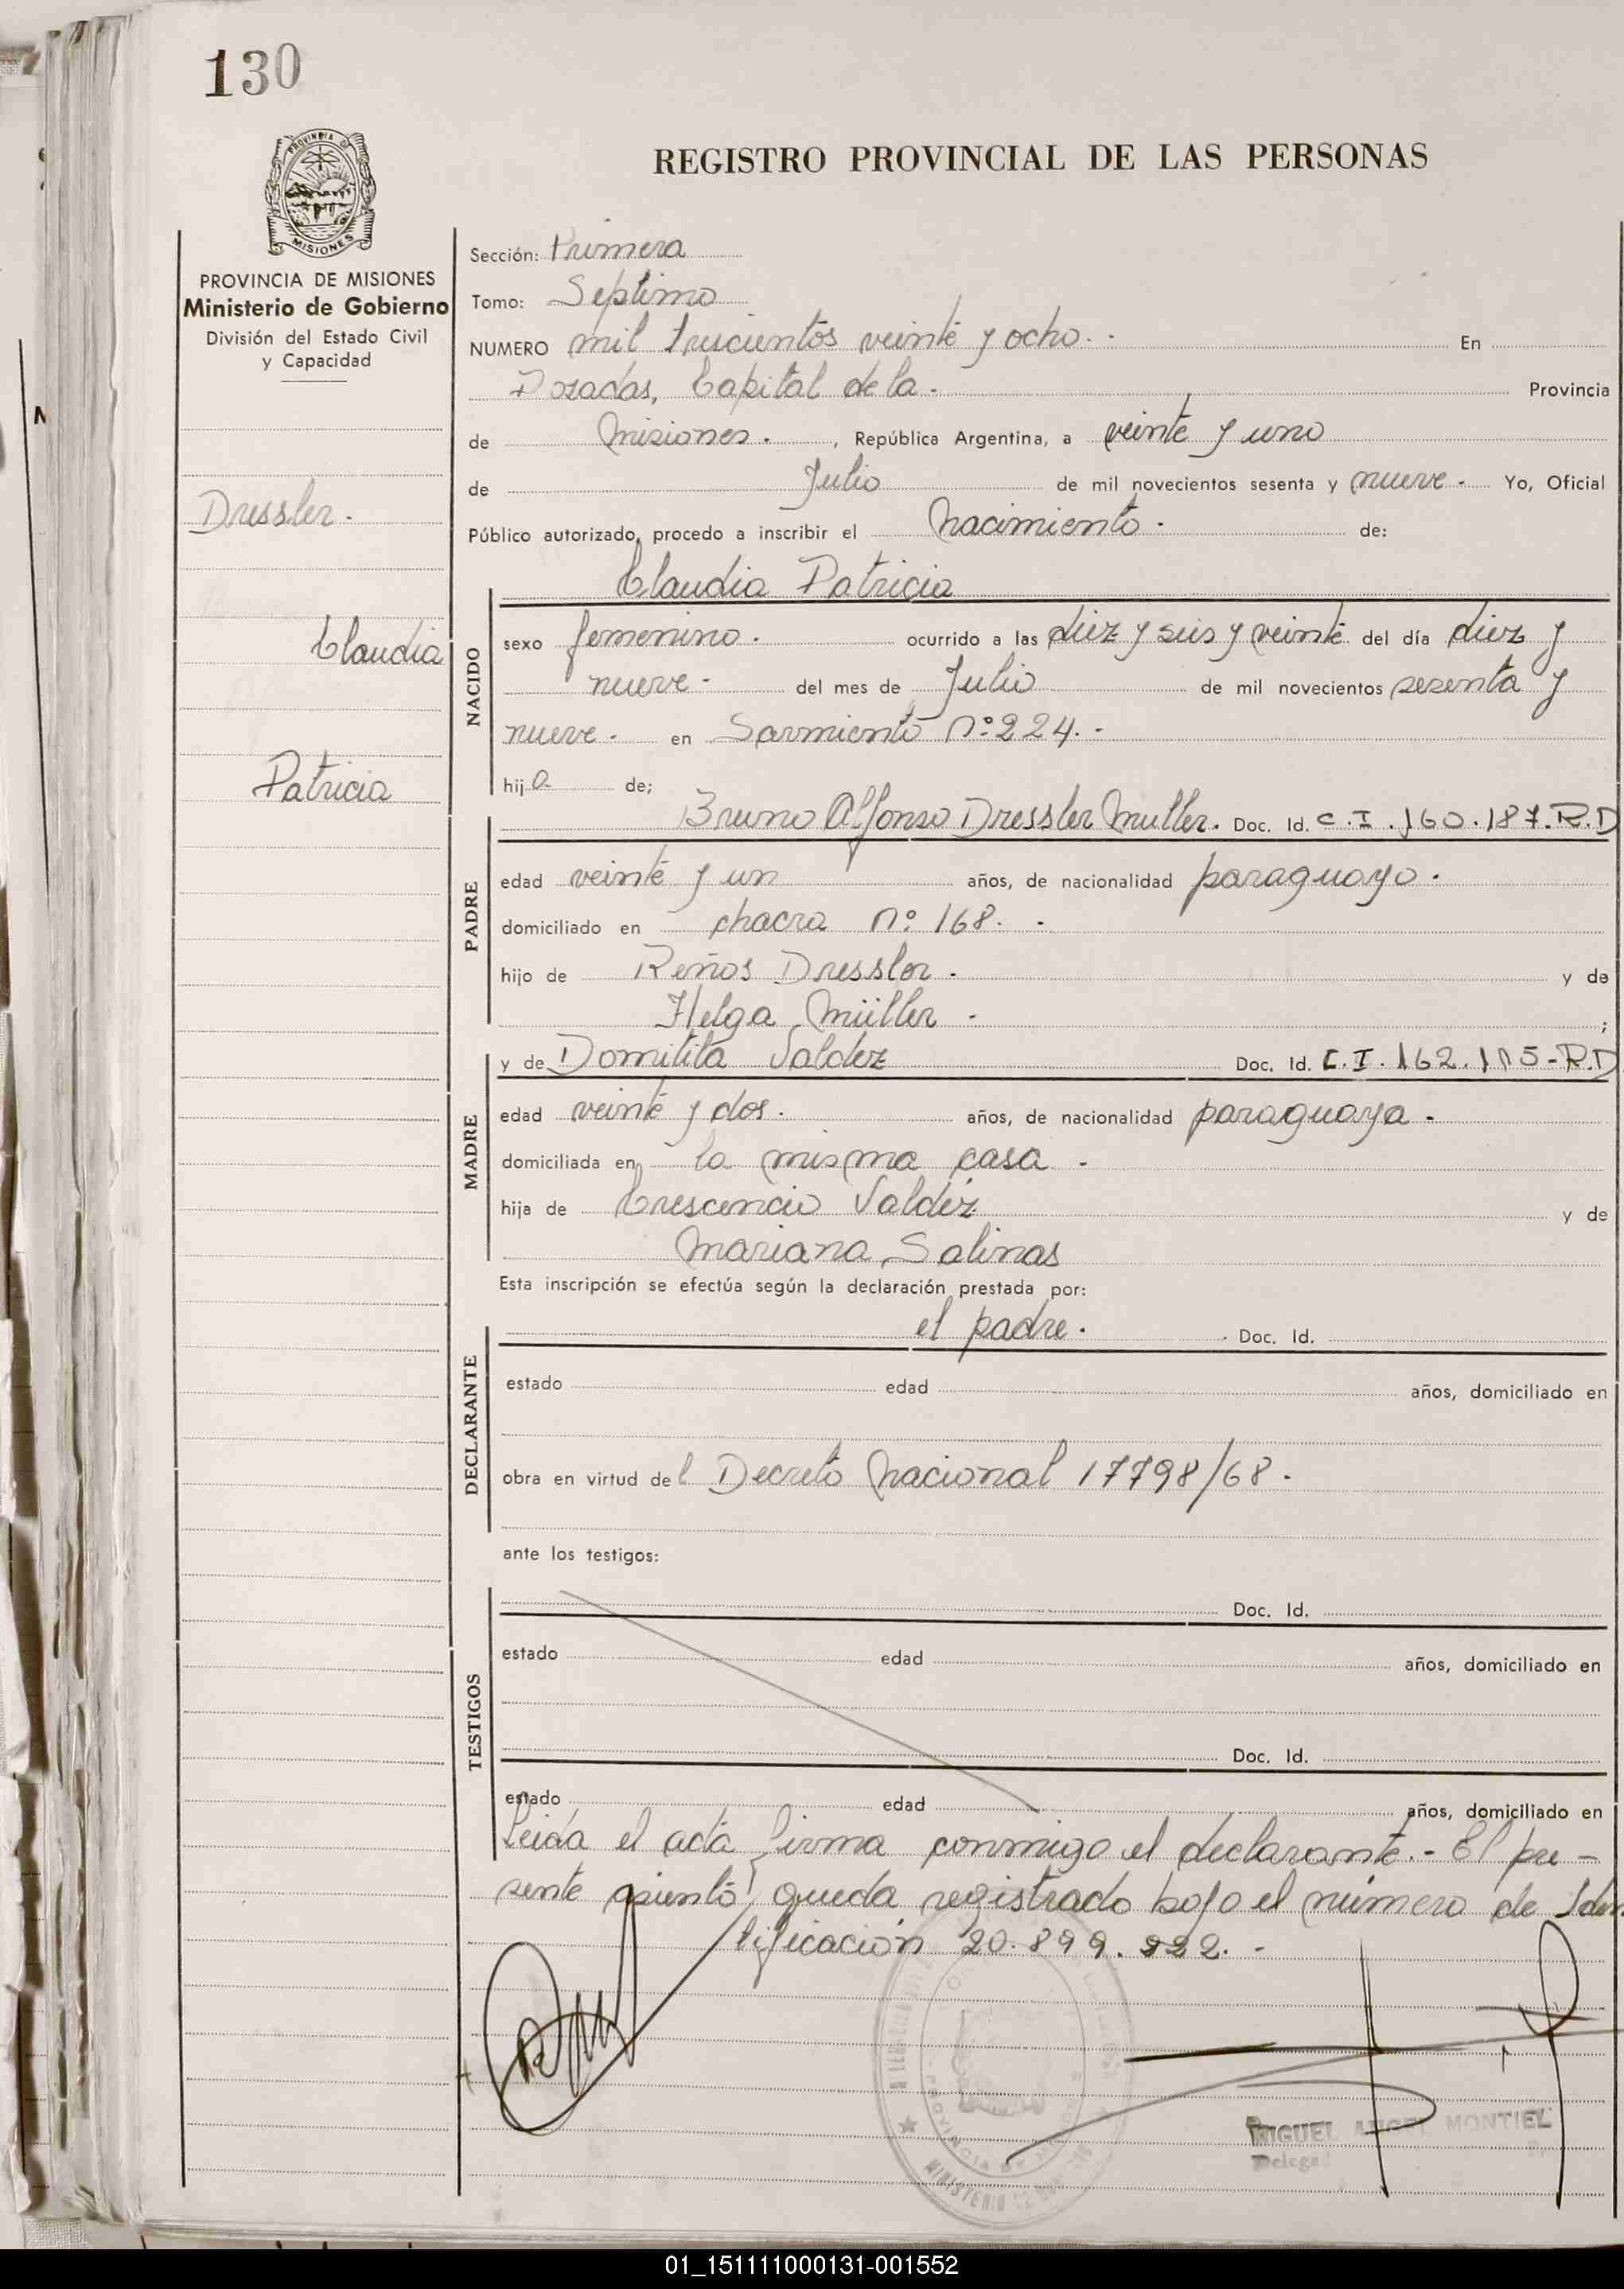 130
PROVINCIA
MISIONES
REGISTRO PROVINCIAL DE LAS PERSONAS
PROVINCIA DE MISIONES
Ministerio de Gobierno
División del Estado Civil
y Capacidad
Dressler.
Claudia
Patricia
Sección: Primera
Tomo: Septimo
NUMERO mil trescientos veinte y ocho. - En
Posadas, Capital de la - Provincia
de Misiones. , República Argentina, a veinte y uno
de Julio de mil novecientos sesenta y nueve - Yo, Oficial
Público autorizado, procedo a inscribir el nacimiento - de:
Claudia Patricia
NACIDO
sexo femenino. ocurrido a las diez y seis y veinte del día diez y
nueve - del mes de Julio de mil novecientos sesenta y
nueve - en Sarmiento nº 224. -
hija de;
Bruno Alfonso Dressler Muller. Doc. Id. C.I. 160.187.R.D
PADRE
edad veinte y un años, de nacionalidad paraguayo.
domiciliado en chacra nº 168. -
hijo de Dressler. y de
Helga Müller - ;
MADRE
y de Domitila Valdez Doc. Id. C.I. 162. -R.D
edad veinte y dos. años, de nacionalidad paraguaya.
domiciliada en la misma casa -
hija de Crescencio Valdéz y de
Mariana Salinas
Esta inscripción se efectúa según la declaración prestada por:
DECLARANTE
el padre. Doc. Id.
estado edad años, domiciliado en
obra en virtud del Decreto Nacional 17798/68.
ante los testigos:
TESTIGOS
Doc. Id.
estado edad años, domiciliado en
Doc. Id.
estado edad años, domiciliado en
Leida el acta firma conmigo el declarante. - El pre-
sente asiento queda registrado bajo el número de Iden
tificación 20.899.222. -
MIGUEL ANGEL MONTIEL
01_151111000131-001552